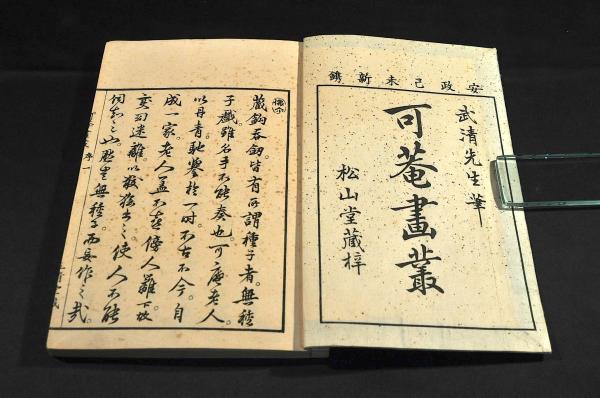 安政己未新鐫
武清先生筆
可菴畫叢
松山堂藏梓
藏鈎吞劔。皆有所謂種子者。無種
子戲雖名手不能奏也。可庵老人
以丹青馳譽於一時。不古不今。自
成一家。老人蓋不喜傍人籬下。故
迷離以出之。使人不能
之也。豈無種子而妄作之哉。